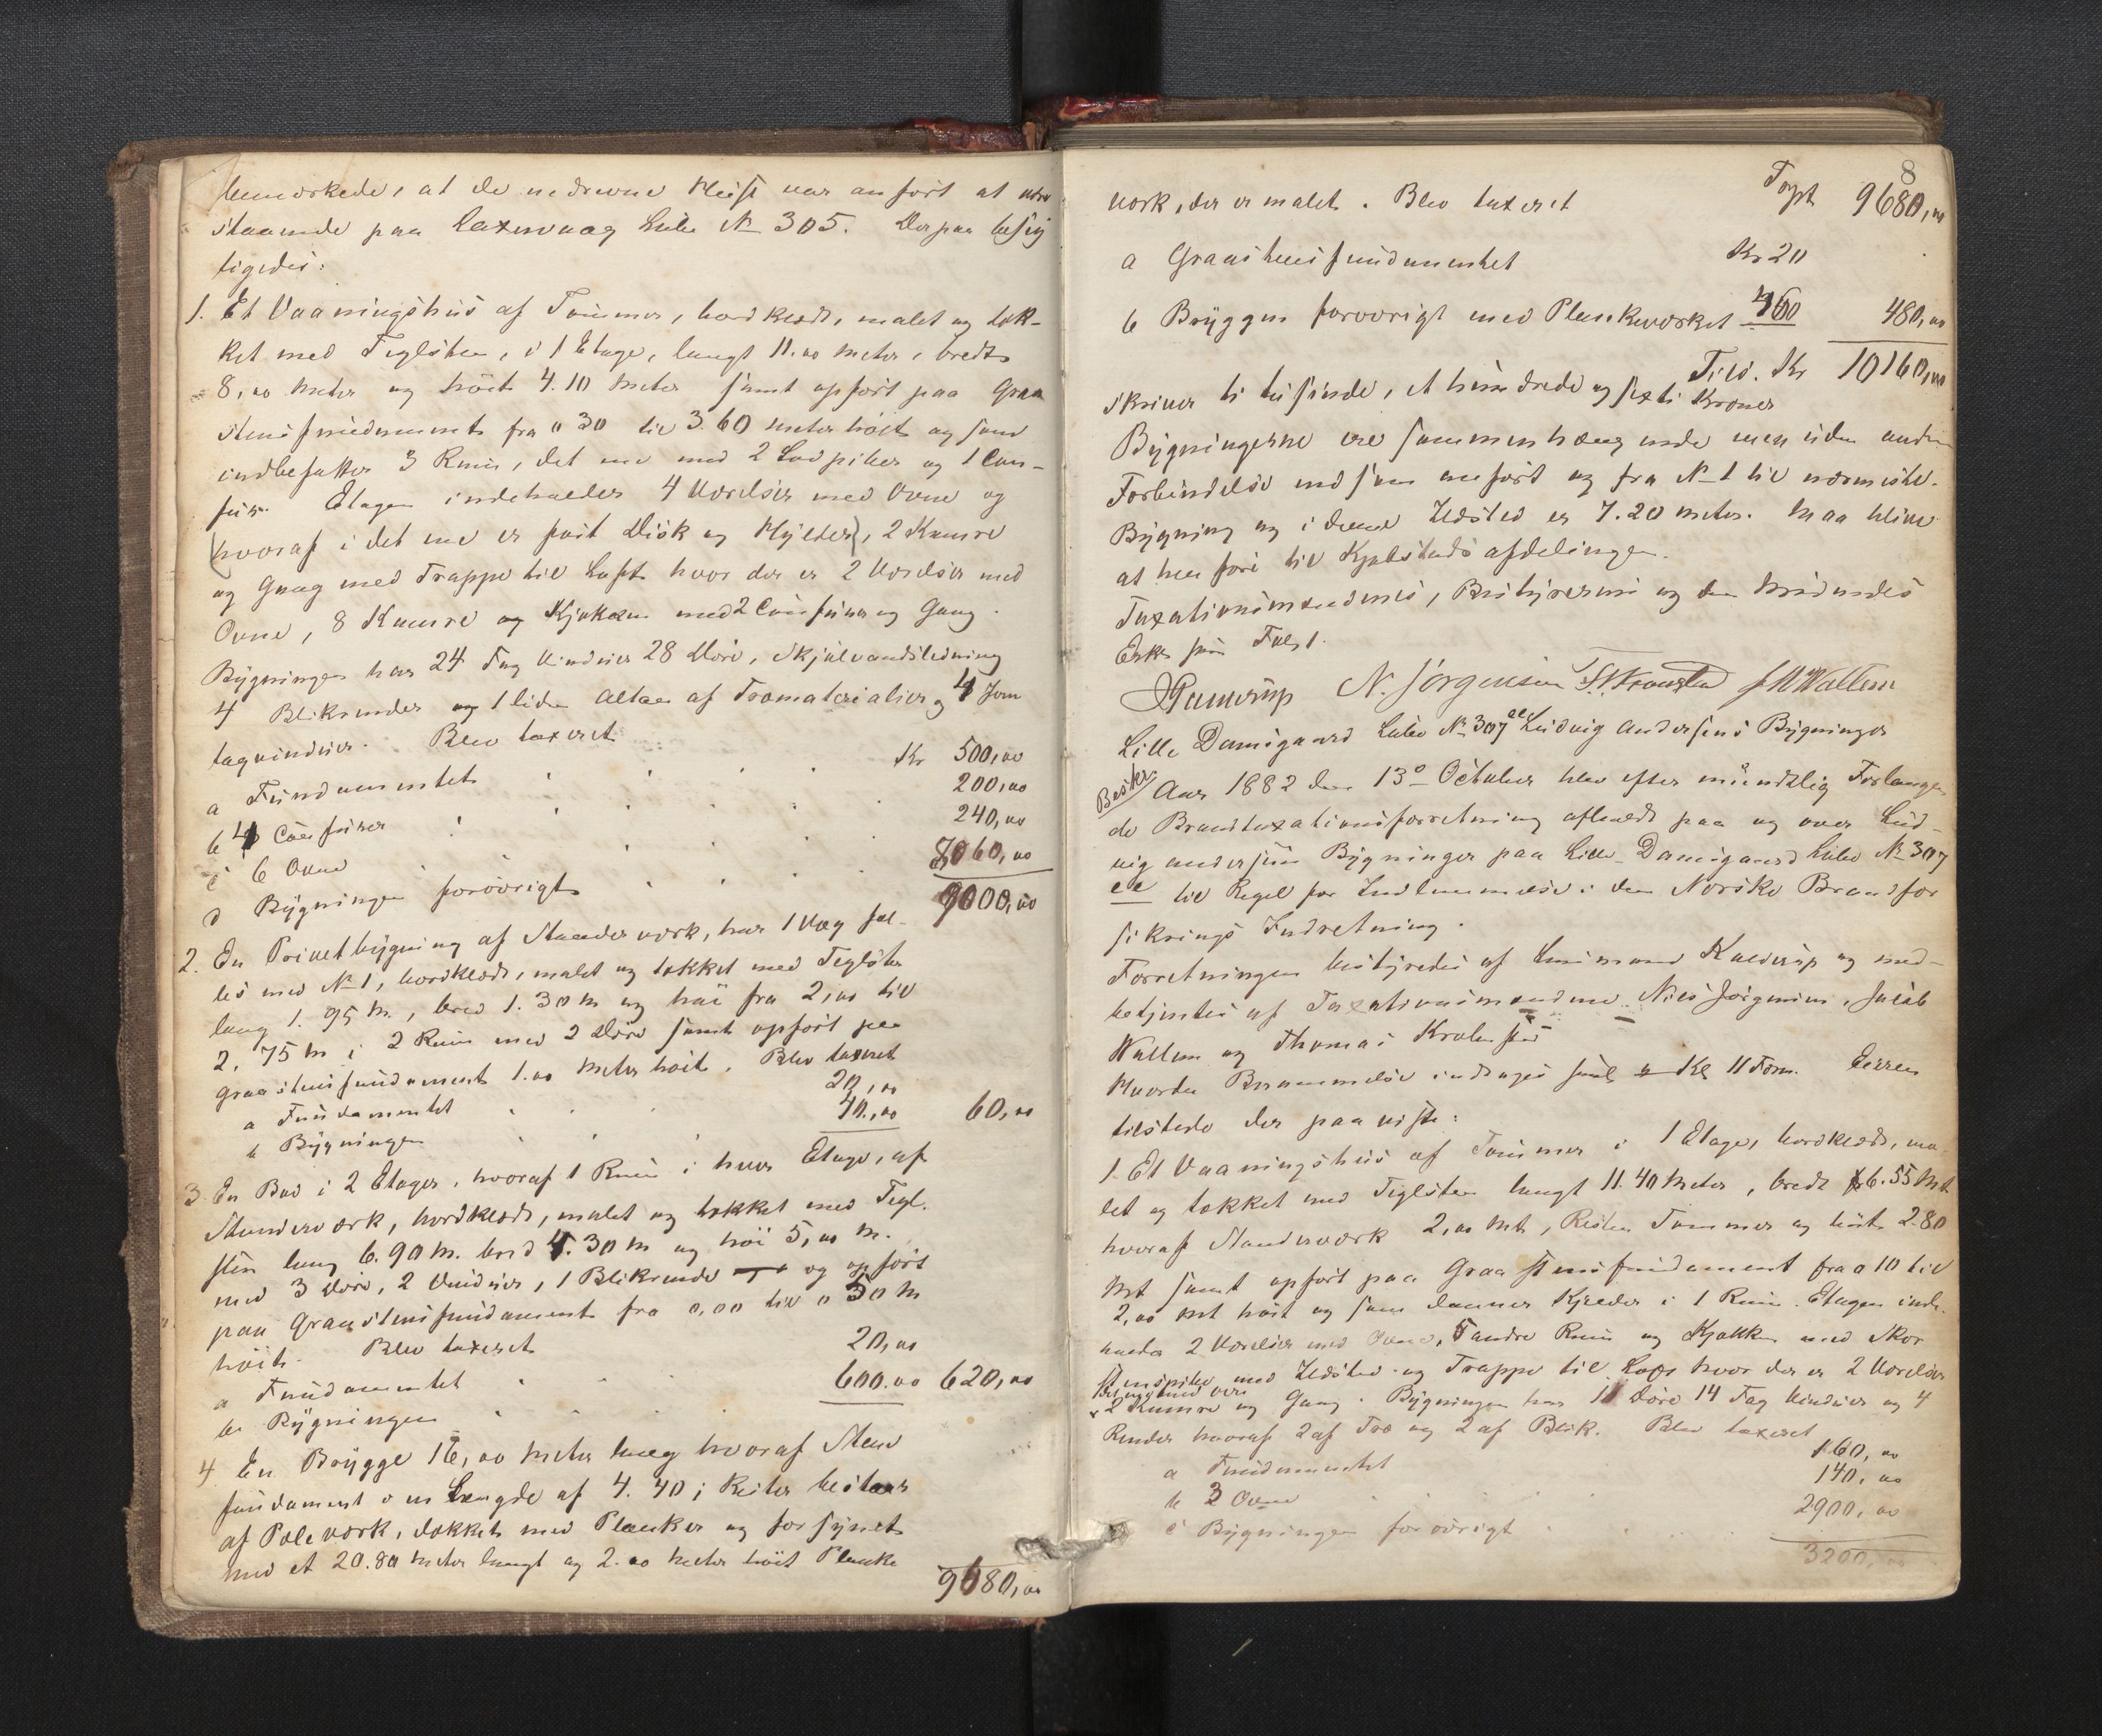 bemærkede, at de nedrevne Huse var anført at være
staaende paa Laxevaag Lübe No 305. Derpaa besig
tigedes:
1. Et Vaaningshus af Tømmer, bordklædt, malet og tæk-
ket med Teglsten, i 1 Etage, langt 11.00 Meter, bredt
8,00 Meter og høit 4.10 Meter samt opført paa Graa
stensfundament fra 0 30 til 3.60 Meter høit og som
indbefatter 3 Rum, det ene med 2 Lodpiber og 1 Com-
für. Etagen indeholder 4 Værelser med Ovne og
(hvoraf i det ene er fast Disk og Hylder), 2 Kamre
og Gang med Trappe til Loft hvor der er 2 Værelser med
Ovne, 8 Kamre og Kjøkken med 2 Comfürer og Gang.
Bygningen har 24 Fag Vinduer 28 Døre, Skjulvandsledning
4 Blikrender og 1 liden Altan af Træmaterialier og 4 Jern
tagvinduer. Blev taxeret
a Fundamentet Kr 500,00
b 4 Comfürer 200,00
c 6 Ovne 240,00
d Bygningen forøvrigt 8060,00
9000,00
2. En Privetbygning af Stenderværk, har 1 Væg fæl-
les med No 1, bordklædt, malet og tækket med Teglsten
lang 1.95 M., bred 1.30 M og høi fra 2,00 til
2,75 M i 2 Rum med 2 Døre samt opført paa
Graastensfundament 1.00 Meter høit. Blev taxeret
a Fundamentet 20,00
b Bygningen 40,00 60,00
3. En Bod i 2 Etager, hvoraf 1 Rum i hver Etage, af
Stenderværk, bordklædt, malet og tækket med Tegl.
sten lang 6.90 M. bred 4.30 M og høi 5,00 M.
med 3 Døre, 2 Vinduer, 1 Blikrende og opført
paa Graastensfundament fra 0,00 til 0 50 M
høit. Blev taxeret
a Fundamentet 20,00
b Bygningen 600.00 620,00
4 En Brygge 16,00 Meter lang hvoraf Sten
fundament i en Længde af 4.40; Resten bestaar
af Pæleværk, dækket med Planker og forsynet
med et 20.80 Meter langt og 2.00 Meter høit Planke
9680,00
8
værk, der er malet. Blev taxeret Tpt 9680,00
a Graastensfundamentet Kr 20
b Bryggen forøvrigt med Plankeværket 460 480,00
Tils. Kr 10160,00
skriver ti tusinde, et hundrede og sexti Kroner
Bygningerne ere sammenhængende men uden anden
Forbindelse end som anført og fra No 1 til nærmeste
Bygning og i denne Ildsted er 7.20 Meter. Maa blive
at henføre til Kjøbstadsafdelingen.
Taxationsmændenes, Bestyrerens og den Brandendes
Eske som Fol. 1.
N. Jørgensen J W Wallem
Lille Damsgaard Lübe No 307 Ludvig Andersens Bygninger
Beskr. Aar 1882 den 13de October blev efter mündtlig Forlangen
de Brandtaxationsforretning afholdt paa og over Lud-
vig Andersens Bygninger paa Lille Damsgaard Lübe No 307
til Regel for Indlemmelse i den Norske Brandfor
sikrings Indretning.
Forretningen bestyredes af Lensmand Kalderup og med-
betjentes af Taxationsmændene Niels Jørgensen, Jacob
Wallem og Thomas
Hvorden Berammelse indtages samt Kl 11 Form. Eieren
tilstede der paaviste:
1. Et Vaaningshus af Tømmer i 1 Etage, bordklædt, ma-
let og tækket med Teglsten langt 11.40 Meter, bredt 6.55 Mt
hvoraf Stenderværk 2,00 Mt, Resten Tømmer og høit 2.80
Mt samt opført paa Graastensfundament fra 0 10 til
2,00 Mt høit og som danner Kjelder i 1 Rum. Etagen inde-
holder 2 Værelser med Ovne, 5 andre Rum og Kjøkken med Skor
stenspibe med Ildsted og Trappe til Loft hvor der er 2 Værelser
2 Kamre og Gang. Bygningen har 11 Døre 14 Fag Vinduer og 4
Render hvoraf 2 af Træ og 2 af Blik. Blev taxeret
a Fundamentet 160,00
b 3 Ovne 140,00
c Bygningen forøvrigt 2900,00
3200,00